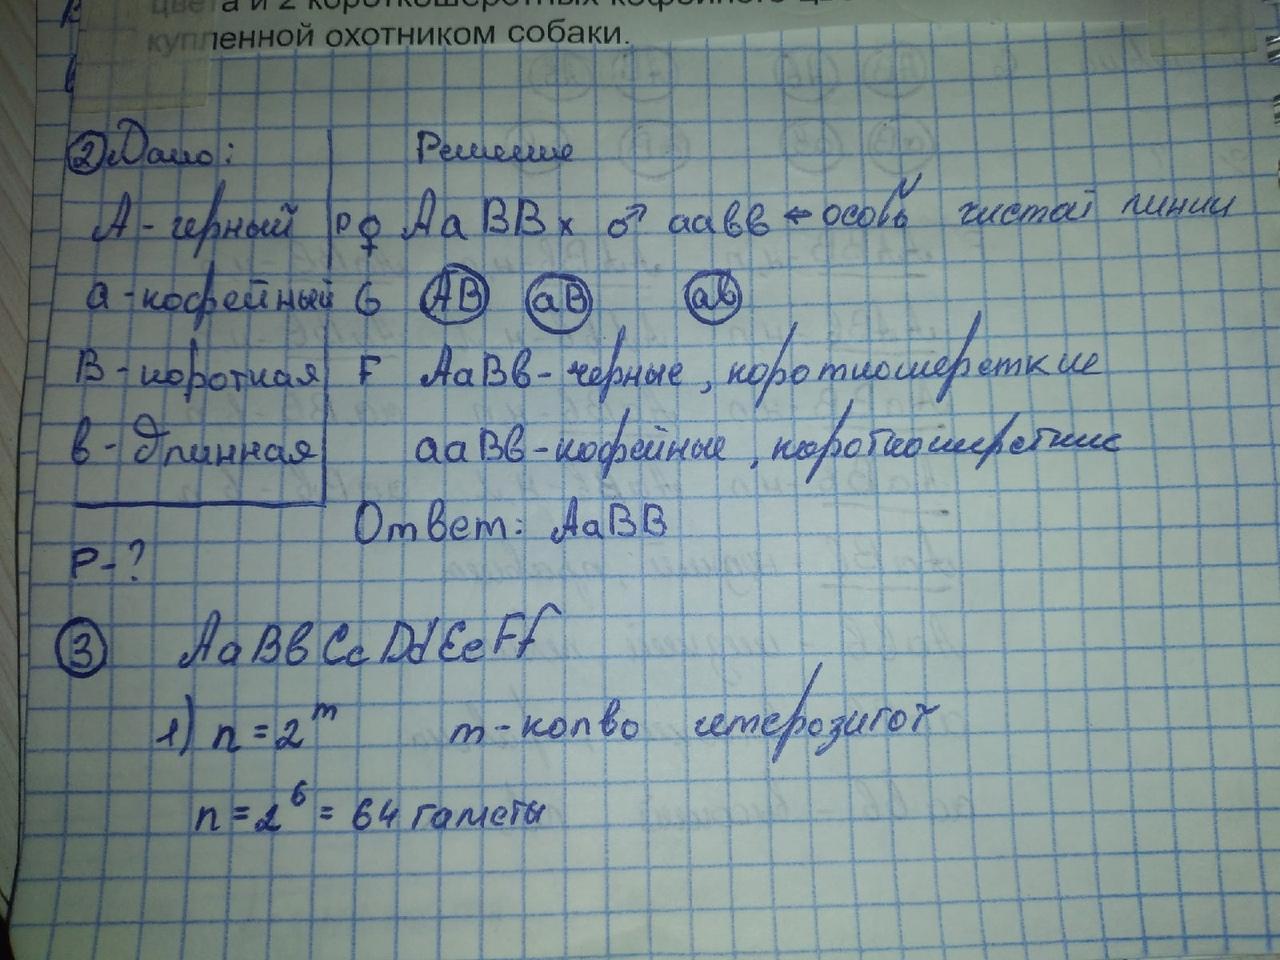 цвета и 2 короткошерстных кофейного
купленной охотником собаки.
2 Дано: Решение
А - черный Р ♀ АаВВ х ♂ аавв ← особь чистой линии
а - кофейный G АВ аВ ав
В - короткая F АаВв - черные, короткошерсткие
в - длинная ааВв - кофейные, короткошерсткие
Ответ: АаВВ
Р - ?
3 АаВвСсDdЕеFf
1) n = 2^m m - колво гетерозигот
n = 2^6 = 64 гаметы